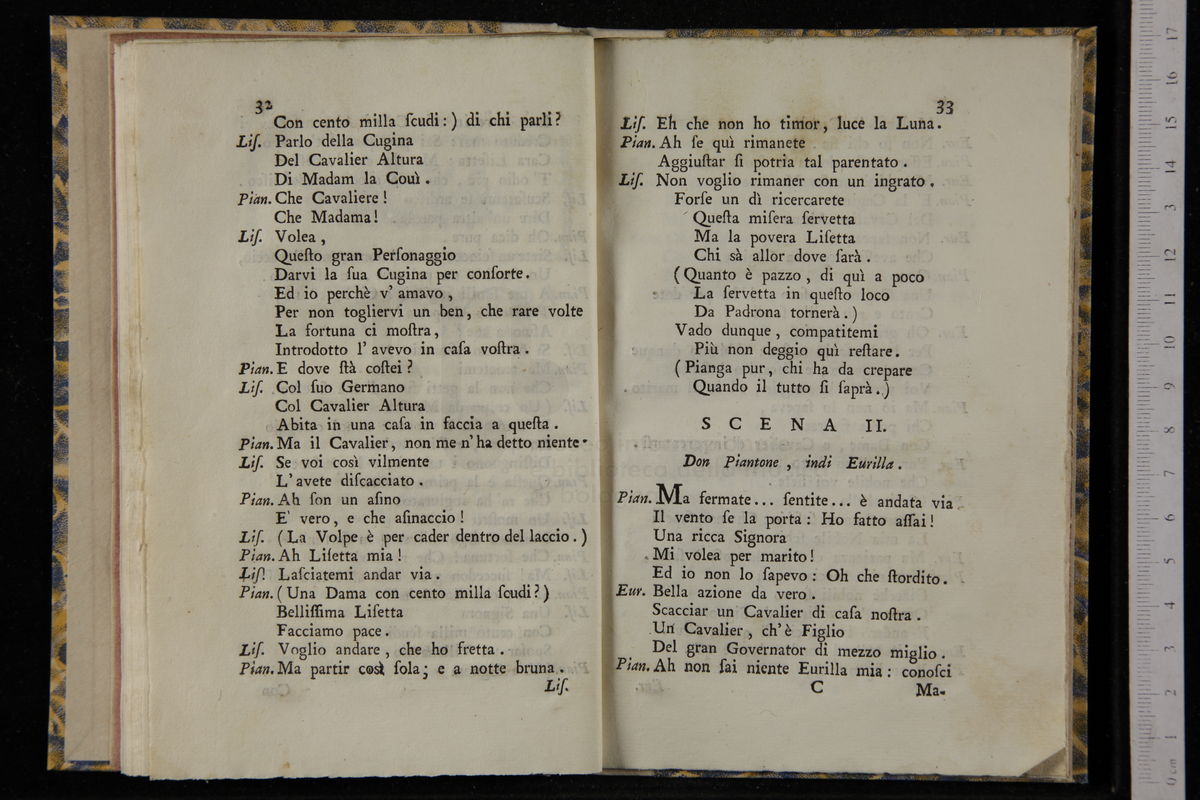 32
Con cento milla ſcudi : ) di chi parli ?
Liſ. Parlo della Cugina
Del Cavalier Altura
Di Madam la Couì .
Pian. Che Cavaliere !
Che Madama !
Liſ. Volea ,
Queſto gran Perſonaggio
Darvi la ſua Cugina per conſorte .
Ed io perchè v' amavo ,
Per non togliervi un ben , che rare volte
La fortuna ci moſtra ,
Introdotto l' avevo in caſa voſtra .
Pian. E dove ſtà coſtei ?
Liſ. Col ſuo Germano
Col Cavalier Altura
Abita in una caſa in faccia a queſta .
Pian. Ma il Cavalier , non me n' ha detto niente .
Liſ. Se voi così vilmente
L' avete diſcacciato .
Pian. Ah ſon un aſino
E' vero , e che aſinaccio !
Liſ. ( La Volpe è per cader dentro del laccio . )
Pian. Ah Liſetta mia !
Liſ. Laſciatemi andar via .
Pian. ( Una Dama con cento milla ſcudi ? )
Belliſſima Liſetta
Facciamo pace .
Liſ. Voglio andare , che ho fretta .
Pian. Ma partir così ſola ; e a notte bruna .
Liſ.
33
Liſ. Eh che non ho timor , luce la Luna .
Pian. Ah ſe quì rimanete
Aggiuſtar ſi potria tal parentato .
Liſ. Non voglio rimaner con un ingrato .
Forſe un dì ricercarete
Queſta miſera ſervetta
Ma la povera Liſetta
Chi sà allor dove ſarà .
( Quanto è pazzo , di quì a poco
La ſervetta in queſto loco
Da Padrona tornerà . )
Vado dunque , compatitemi
Più non deggio quì reſtare .
( Pianga pur , chi ha da crepare
Quando il tutto ſi ſaprà . )
SCENA II.
Don Piantone , indi Eurilla .
Pian. Ma fermate ... ſentite ... è andata via
Il vento ſe la porta : Ho fatto aſſai !
Una ricca Signora
Mi volea per marito !
Ed io non lo ſapevo : Oh che ſtordito .
Eur. Bella azione da vero .
Scacciar un Cavalier di caſa noſtra .
Un Cavalier , ch' è Figlio
Del gran Governator di mezzo miglio .
Pian. Ah non ſai niente Eurilla mia : conoſci
C Ma-
0 cm 1 2 3 4 5 6 7 8 9 10 11 12 13 14 15 16 17